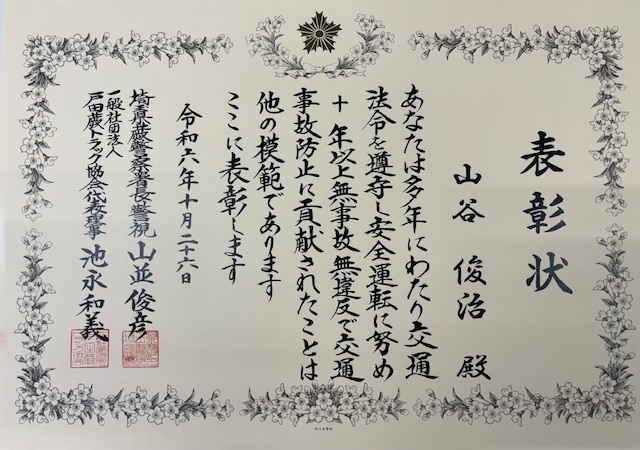 表彰状
山谷 俊治 殿
あなたは多年にわたり交通
法令を遵守し安全運転に努め
十年以上無事故無違反で交通
事故防止に貢献されたことは
他の模範であります
ここに表彰します
令和六年十月二十六日
埼玉県蕨警察署長警視 山並俊彦
一般社団法人
戸田蕨トラック協会代表理事 池永和義